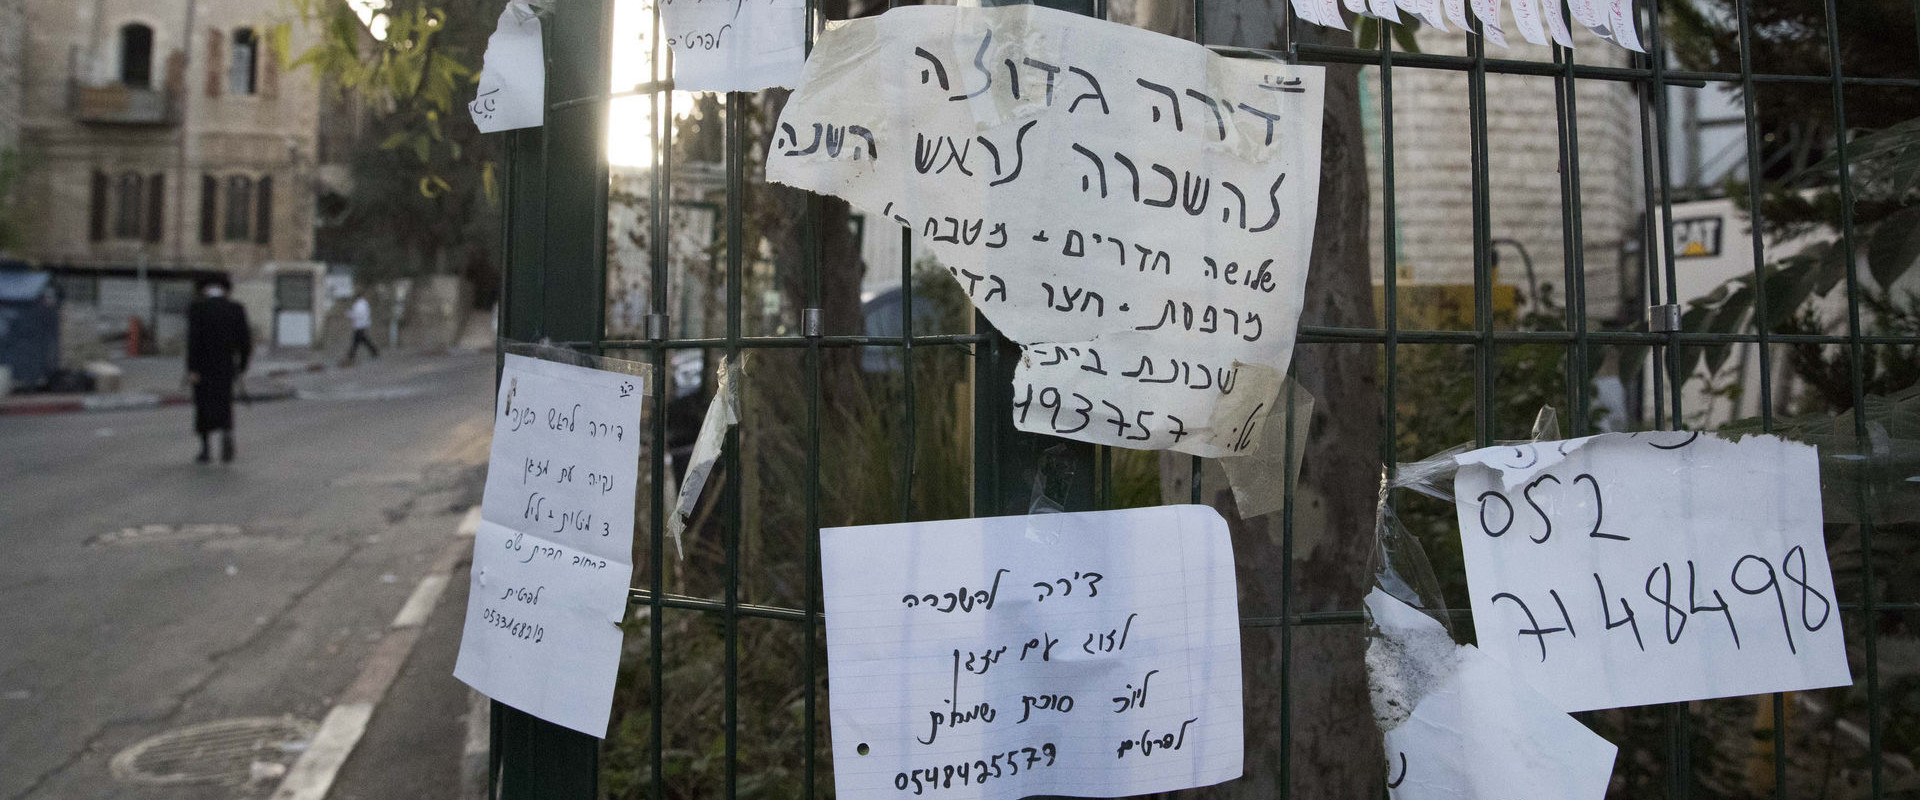 לפרטים
בס"ד
דירה גדולה
להשכרה לראש השנה
שלושה חדרים + מטבח
מרפסת + חצר גדי
שכונת בית-
טל: 193757
בס"ד
דירה לראש השנה
נקיה עם מזגן
3 מיטות + לול
ברחוב חברת ש"ס
לפרטים
0533168212
דירה להשכרה
לזוג עם מזגן
ליו"כ סוכת ושמח"ת
לפרטים 0548425579
052
7148498
CAT